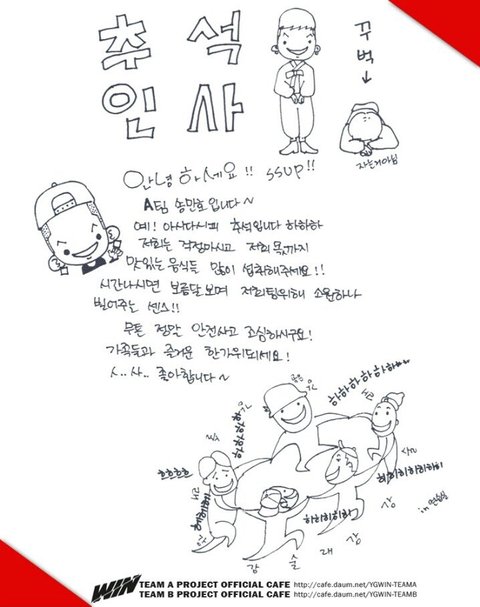 추석
인사
꾸벅↓
자는거아님
안녕하세요!! SSUP!!
A팀 송민호입니다~
예! 아시다시피 추석입니다 하하하
저희는 걱정마시고 저희 몫까지
맛있는 음식들 많이 섭취해주세요!!
시간나시면 보름달보며 저희팀위해 소원하나
빌어주는 센스!!
무튼 정말 안전사고 조심하시구요!
가족들과 즐거운 한가위되세요!
ㅅ..사.. 좋아합니다~
하하하하하하
하하하하
ㅎㅎㅎㅎ
히히히히히히
하하하히히
강 술 래 강 강
in 연습실
WIN TEAM A PROJECT OFFICIAL CAFE http://cafe.daum.net/YGWIN-TEAMA
TEAM B PROJECT OFFICIAL CAFE http://cafe.daum.net/YGWIN-TEAMB